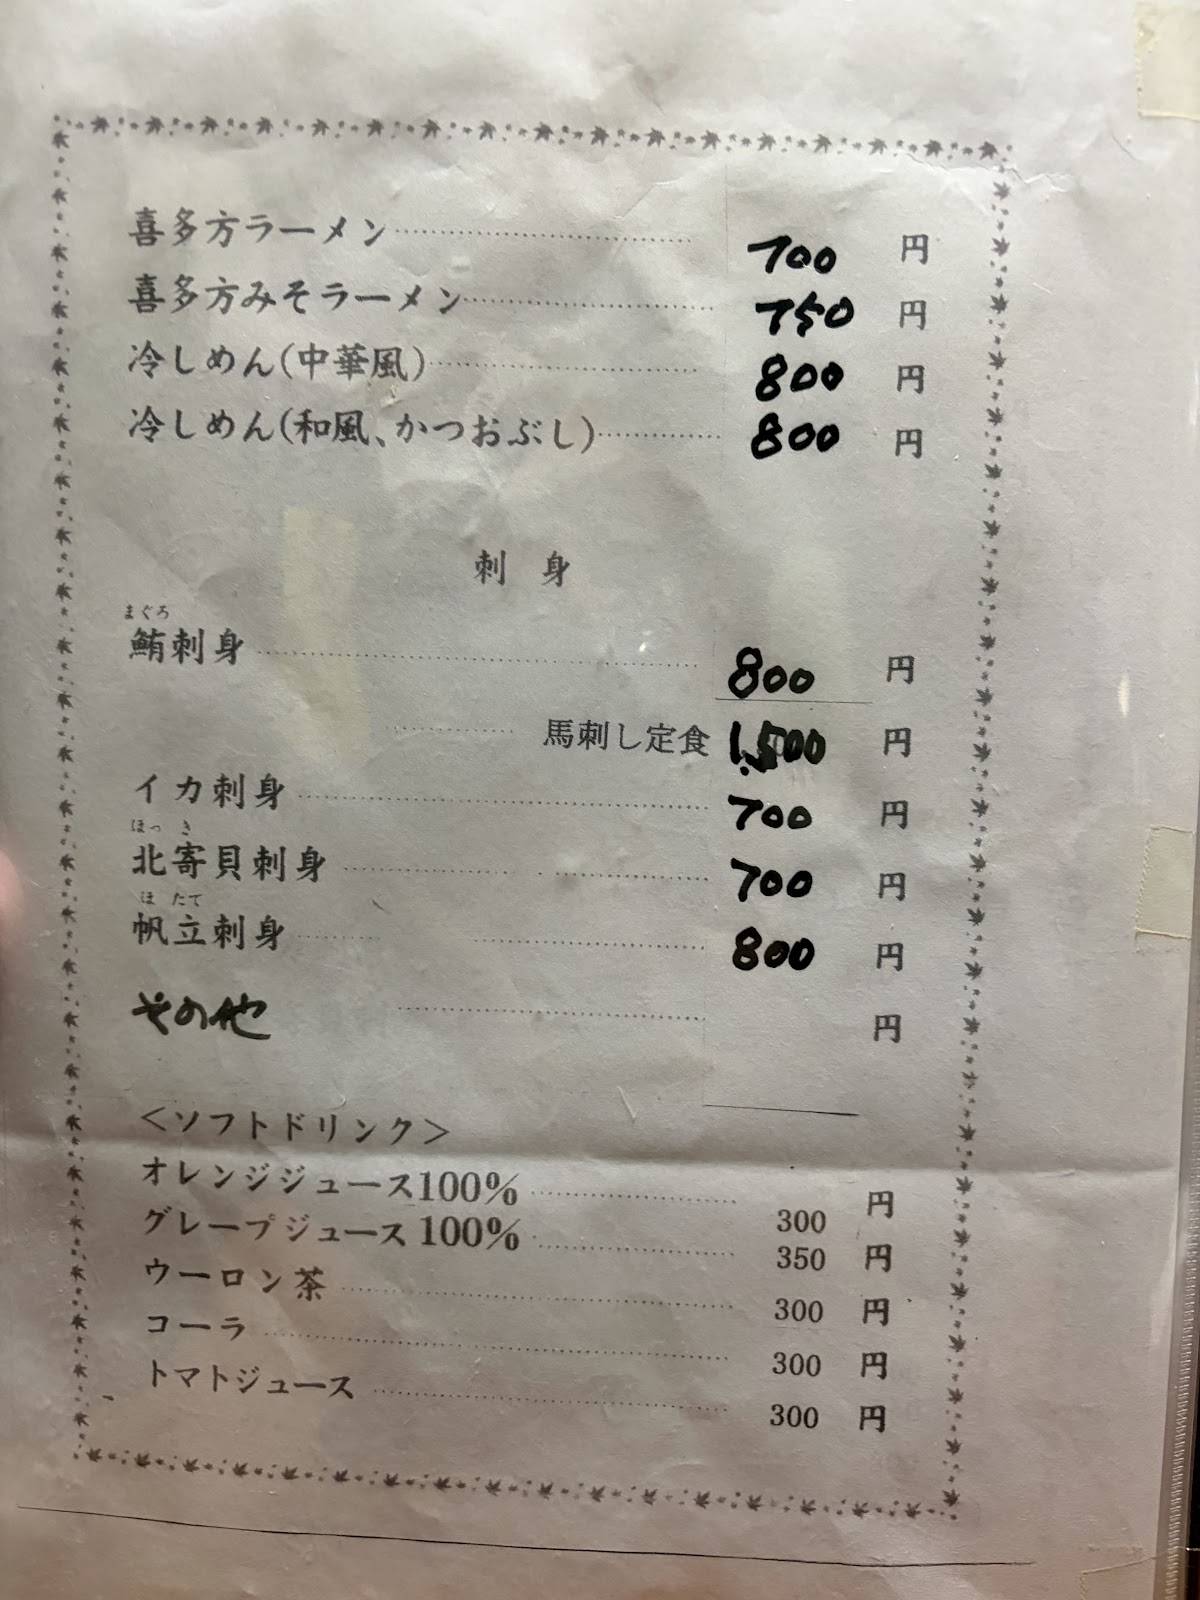 喜多方ラーメン 700 円
喜多方みそラーメン 750 円
冷しめん(中華風) 800 円
冷しめん(和風、かつおぶし) 800 円
刺 身
まぐろ
鮪刺身 800 円
馬刺し定食 1,500 円
イカ刺身 700 円
ほっ き
北寄貝刺身 700 円
ほ たて
帆立刺身 800 円
その他 円
＜ソフトドリンク＞
オレンジジュース100% 300 円
グレープジュース100% 350 円
ウーロン茶 300 円
コーラ 300 円
トマトジュース 300 円